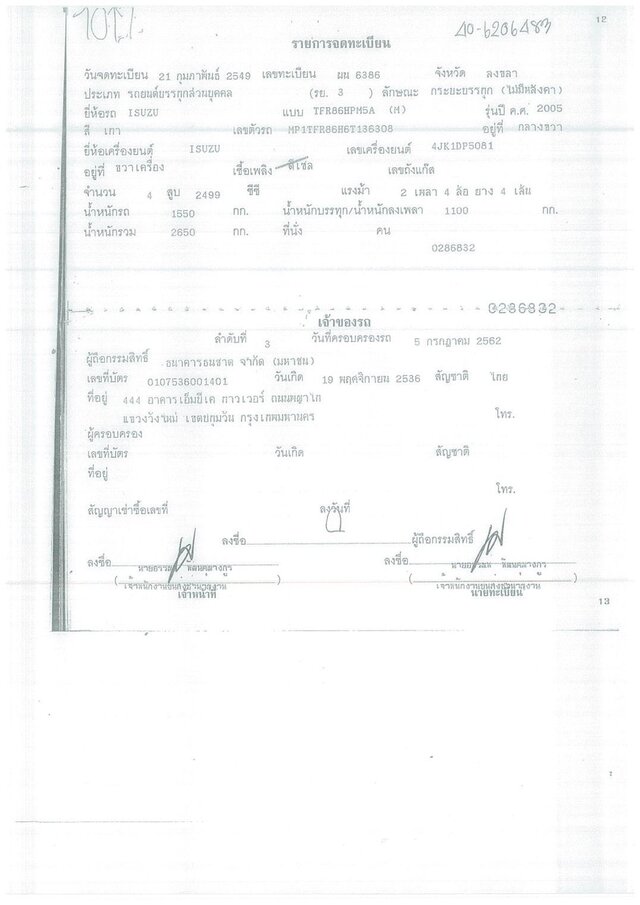 40-6206483
12
รายการจดทะเบียน
วันจดทะเบียน 21 กุมภาพันธ์ 2549 เลขทะเบียน ผผ 6386 จังหวัด สงขลา
ประเภท รถยนต์บรรทุกส่วนบุคคล (รย. 3 ) ลักษณะ กระบะบรรทุก (ไม่มีหลังคา)
ยี่ห้อรถ ISUZU แบบ TFR86HPM5A (M) รุ่นปี ค.ศ. 2005
สี เทา เลขตัวรถ MP1TFR86H6T136308 อยู่ที่ กลางขวา
ยี่ห้อเครื่องยนต์ ISUZU เลขเครื่องยนต์ 4JK1DP5081
อยู่ที่ ขวาเครื่อง เชื้อเพลิง ดีเซล เลขถังแก๊ส
จำนวน 4 สูบ 2499 ซีซี แรงม้า 2 เพลา 4 ล้อ ยาง 4 เส้น
น้ำหนักรถ 1550 กก. น้ำหนักบรรทุก/น้ำหนักลงเพลา 1100 กก.
น้ำหนักรวม 2650 กก. ที่นั่ง คน
0286832
0286832
เจ้าของรถ
ลำดับที่ 3 วันที่ครอบครองรถ 5 กรกฎาคม 2562
ผู้ถือกรรมสิทธิ์ ธนาคารธนชาต จำกัด (มหาชน)
เลขที่บัตร 0107536001401 วันเกิด 19 พฤศจิกายน 2536 สัญชาติ ไทย
ที่อยู่ 444 อาคารเอ็มบีเค ทาวเวอร์ ถนนพญาไท
แขวงวังใหม่ เขตปทุมวัน กรุงเทพมหานคร โทร.
ผู้ครอบครอง
เลขที่บัตร วันเกิด สัญชาติ
ที่อยู่
โทร.
สัญญาเช่าซื้อเลขที่ ลงวันที่
ลงชื่อ ผู้ถือกรรมสิทธิ์
ลงชื่อ ลงชื่อ
เจ้าพนักงานขนส่งชำนาญงาน เจ้าพนักงานขนส่งชำนาญงาน
เจ้าหน้าที่ นายทะเบียน
13